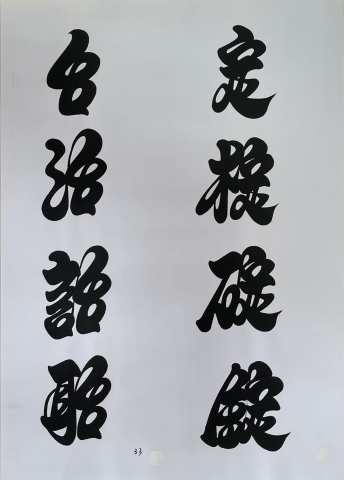 定椗碇錠
台治詒
33